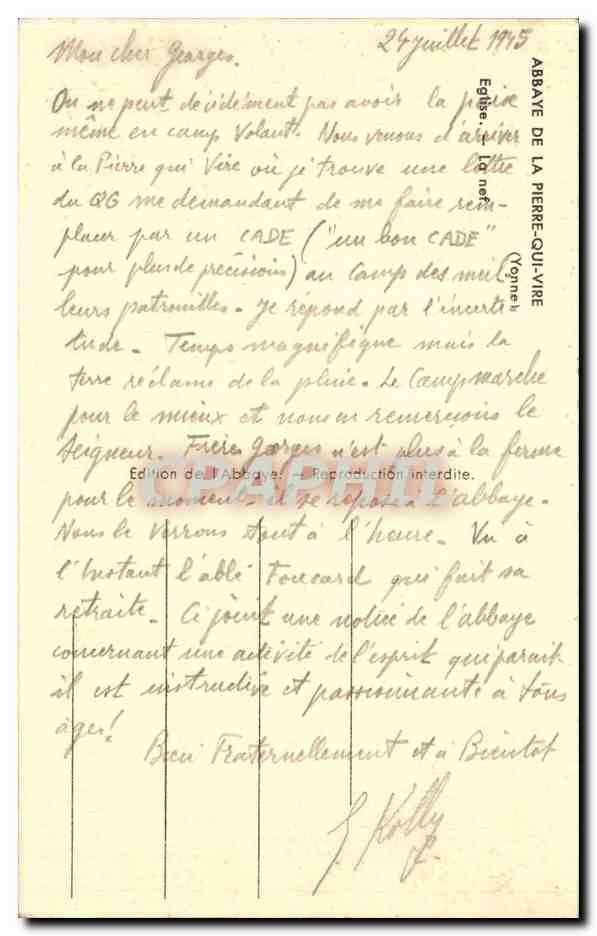 24 juillet 1945
Mon cher Georges.
On ne peut décidément pas avoir la paix
même en camp volant. Nous venons d'arriver
à la Pierre qui Vire où je trouve une lettre
du QG me demandant de me faire rem-
placer par un CADE ("un bon CADE"
pour plus de précisions) au Camp des meil-
leurs patrouilles. Je répond par l'incerti
tude. Temps magnifique mais la
terre réclame de la pluie. Le Camp marche
pour le mieux et nous en remercions le
Seigneur. Frère Georges n'est plus à la ferme
pour le moment il se repose à l'abbaye.
Nous le verrons tout à l'heure. Vu à
l'instant l'abbé Foucard qui fait sa
retraite. Ci joint une notice de l'abbaye
concernant une activité de l'esprit qui parait-
il est instructive et passionnante à tous
âges!
Bien Fraternellement et à Bientot
Kolly
ABBAYE DE LA PIERRE-QUI-VIRE
(Yonne)
Eglise. — La nef
Edition de l'Abbaye. — Reproduction interdite.
CPAPHIL